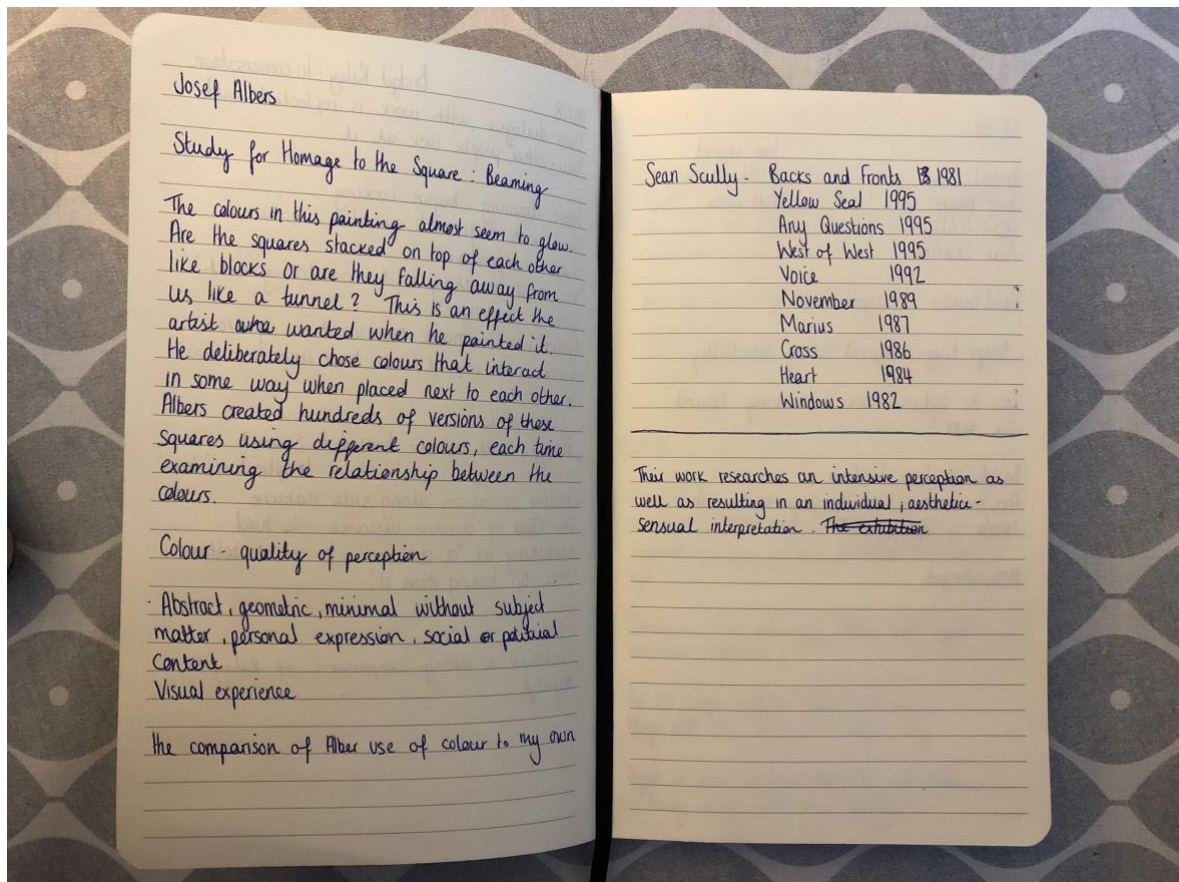 Josef Albers
Study for Homage to the Square : Beaming
The colours in this painting almost seem to glow.
Are the squares stacked on top of each other
like blocks or are they falling away from
us like a tunnel ? This is an effect the
artist wanted when he painted it.
He deliberately chose colours that interact
in some way when placed next to each other.
Albers created hundreds of versions of these
squares using different colours, each time
examining the relationship between the
colours.
Colour - quality of perception
· Abstract, geometric, minimal without subject
matter, personal expression, social or political
content
Visual experience
the comparison of Alber use of colour to my own
Sean Scully - Backs and Fronts 1981
Yellow Seal 1995
Any Questions 1995
West of West 1995
Voice 1992
November 1989
Marius 1987
Cross 1986
Heart 1984
Windows 1982
Their work researches an intensive perception as
well as resulting in an individual, aesthetic-
sensual interpretation. The exhibition